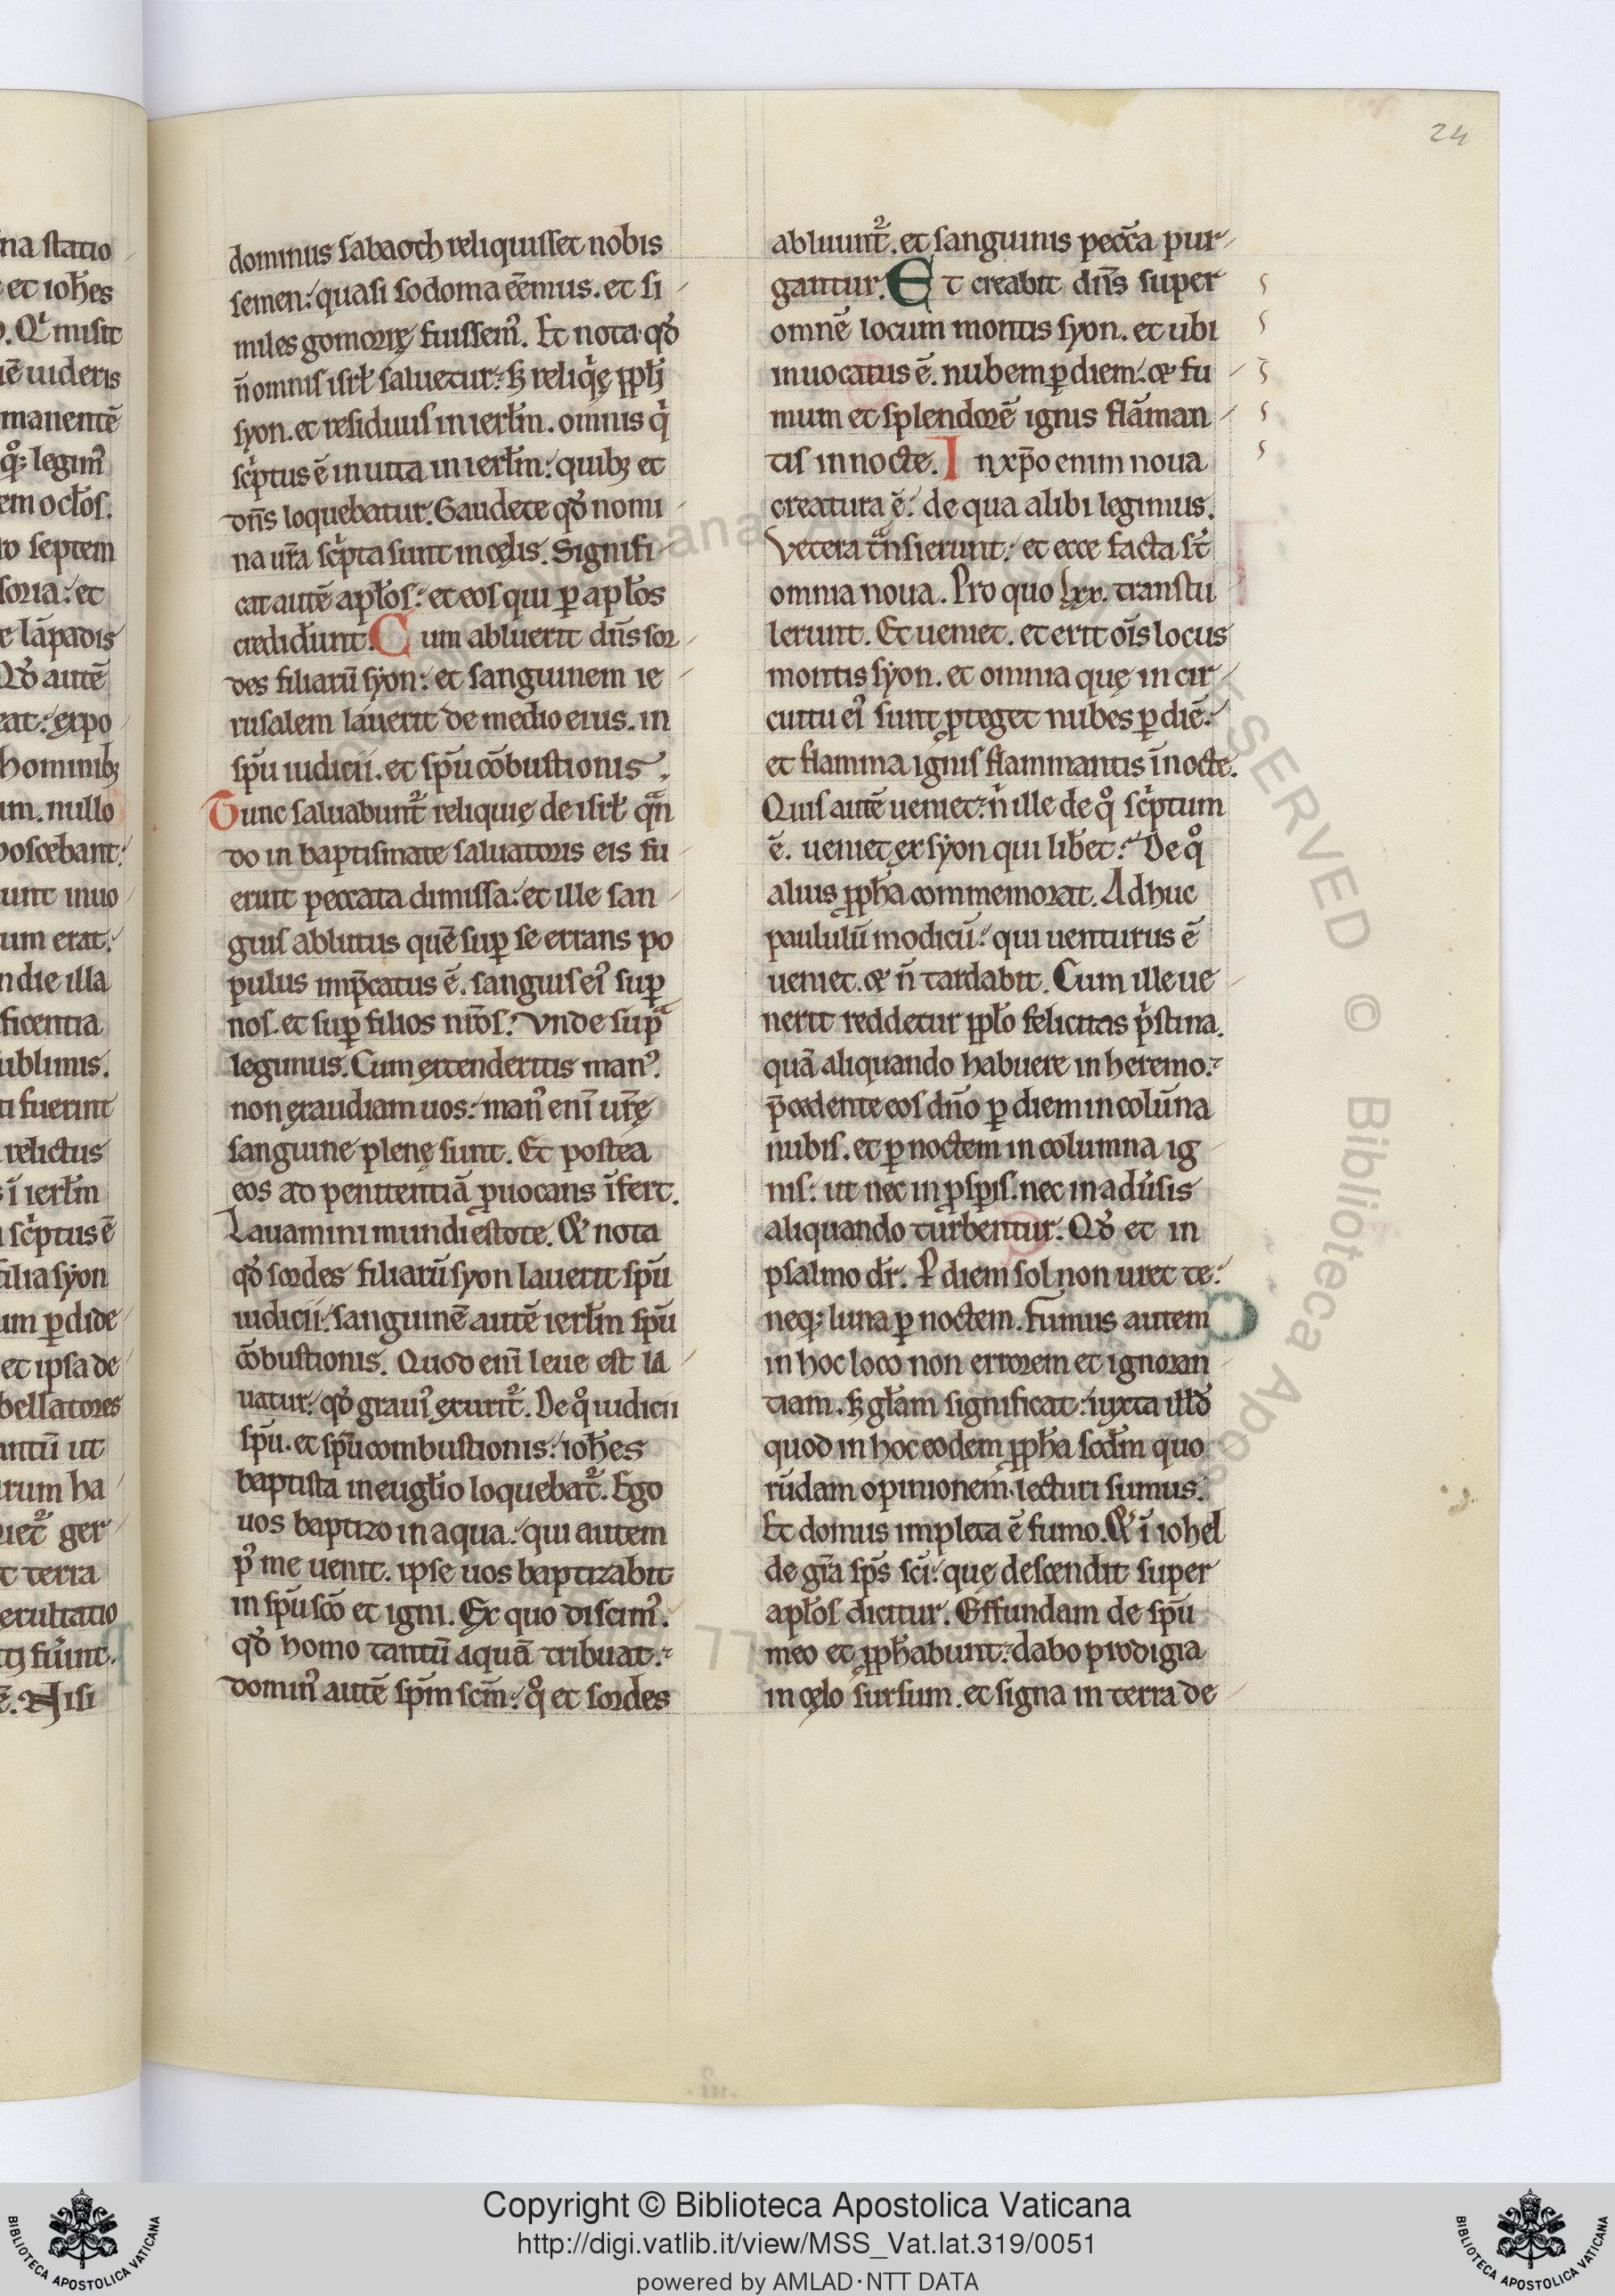 na statio
et ioħes
. Qͥ misit
iē uideris
manentē
q̊; legimꝰ
em octos.
ro septem
soria: et
e lāpadis
Qđ autē
eat: expo
hominibꝫ
um. nullo
poscebant:
unt inuo
um erat:
n die illa
ficentia
ublimis.
ti fuerint
relictus
ī ierłm
scͥptus ē
filia syon
um ꝑdide
et ipsa de
bellatores
antū ut
rum ha
ger
t terra
exultatio
fu̾int.
ē. Nisi
24
dominus sabaoth reliquisset nobis
semen: quasi sodoma eēmus. et si
miles gomorrę fuissemꝰ. Et nota qđ
n̄ omnis isrł saluetur: ꝫ reliqͥę ppłi
syon. et residuus in ierłm. omnis qͥ
scͥptus ē in uita in ierłm: quibꝫ et
dn̄s loquebatur. Gaudete qđ nomi
na ur̄a scͥpta sunt in cęlis. Signifi
cat autē apłos: et eos qui ꝑ apłos
credider̄unt. Cum abluerit dn̄s sor
des filiarū syon: et sanguinem ie
rusalem lauerit de medio eius. in
sp̄u iudicii. et sp̄u cōbustionis.
Tunc saluabunt᷑ reliquię de isrł qᷓn
do in baptismate saluatoris eis fu
erint peccata dimissa: et ille san
guis ablutus quē suꝑ se errans po
pulus imp̄catus ē. sanguis eiꝰ suꝑ
nos. et suꝑ filios nr̄os. Vnde supᷓ
legimus. Cum extenderitis manꝰ.
non exaudiam uos: manꝰ enī ur̄ę
sanguine plenę sunt. Et postea
eos ad penitentiā ꝓuocans īfert.
Lauamini mundi estote. & nota
qđ sordes filiarū syon lauerit sp̄u
iudicii: sanguinē autē ierłm sp̄u
cōbustionis. Quod enī leue est la
uatur: qđ grauiꝰ exurit᷑. De q̊ iudicii
sp̄u. et sp̄u combustionis: ioħes
baptista in eugłio loquebat᷑. Ego
uos baptizo in aqua: qui autem
pꝰ me uenit. ipse uos baptizabit
in sp̄u scō et igni. Ex quo discimꝰ.
qđ homo tantū aquā tribuat:
dominꝰ autē sp̄m scm̄: q̊ et sordes
abluunt᷑. et sanguinis pecc̄a pur
gantur. Et creabit dn̄s super
omnē locum montis syon. et ubi
inuocatus ē. nubem ꝑ diem: & fu
mum et splendorē ignis flāman
tis in nocte. In xp̄o enim noua
creatura ē: de qua alibi legimus.
Vetera tᷓnsierunt: et ecce facta st̄
omnia noua. Pro quo lxx. transtu
lerunt. Et ueniet. et erit oīs locus
montis syon. et omnia quę in cir
cuitu eiꝰ sunt ꝓteget nubes ꝑ diē:
et flamma ignis flammantis ī nocte.
Quis autē ueniet: nͥ ille de q̊ scͥptum
ē. ueniet ex syon qui libet: De q̊
alius ꝓpħa commemorat. Adhuc
paululū modicū: qui uenturus ē
ueniet. & n̄ tardabit. Cum ille ue
nerit reddetur ppło felicitas pͥstina.
quā aliquando habuere in heremo:
p̄cedente eos dn̄o ꝑ diem in colūna
nubis. et ꝑ noctem in columna ig
nis: ut nec in ꝓsꝑis. nec in adu̾sis
aliquando turbentur. Qđ et in
psalmo dr̄. Ꝑ diem sol non uret te:
neqꝫ luna ꝑ noctem. Fumus autem
in hoc loco non errorem et ignoran
tiam. ꝫ głam significat: iuxta illđ
quod in hoc eodem ꝓpħa scđm quo
rūdam opinionem lecturi sumus.
Et domus impleta ē fumo. & ī iohel
de gr̄a sp̄s sc̄i: quę descendit super
apłos dicitur. Effundam de sp̄u
meo et ꝓpħabunt: dabo prodigia
in cęlo sursum. et signa in terra de
Copyright © Biblioteca Apostolica Vaticana
http://digi.vatlib.it/view/MSS_Vat.lat.319/0051
powered by AMLAD·NTT DATA
BIBLIOTECA APOSTOLICA VATICANA
BIBLIOTECA APOSTOLICA VATICANA